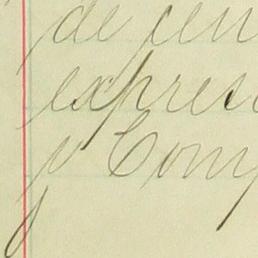 de cen
expres
y Comp